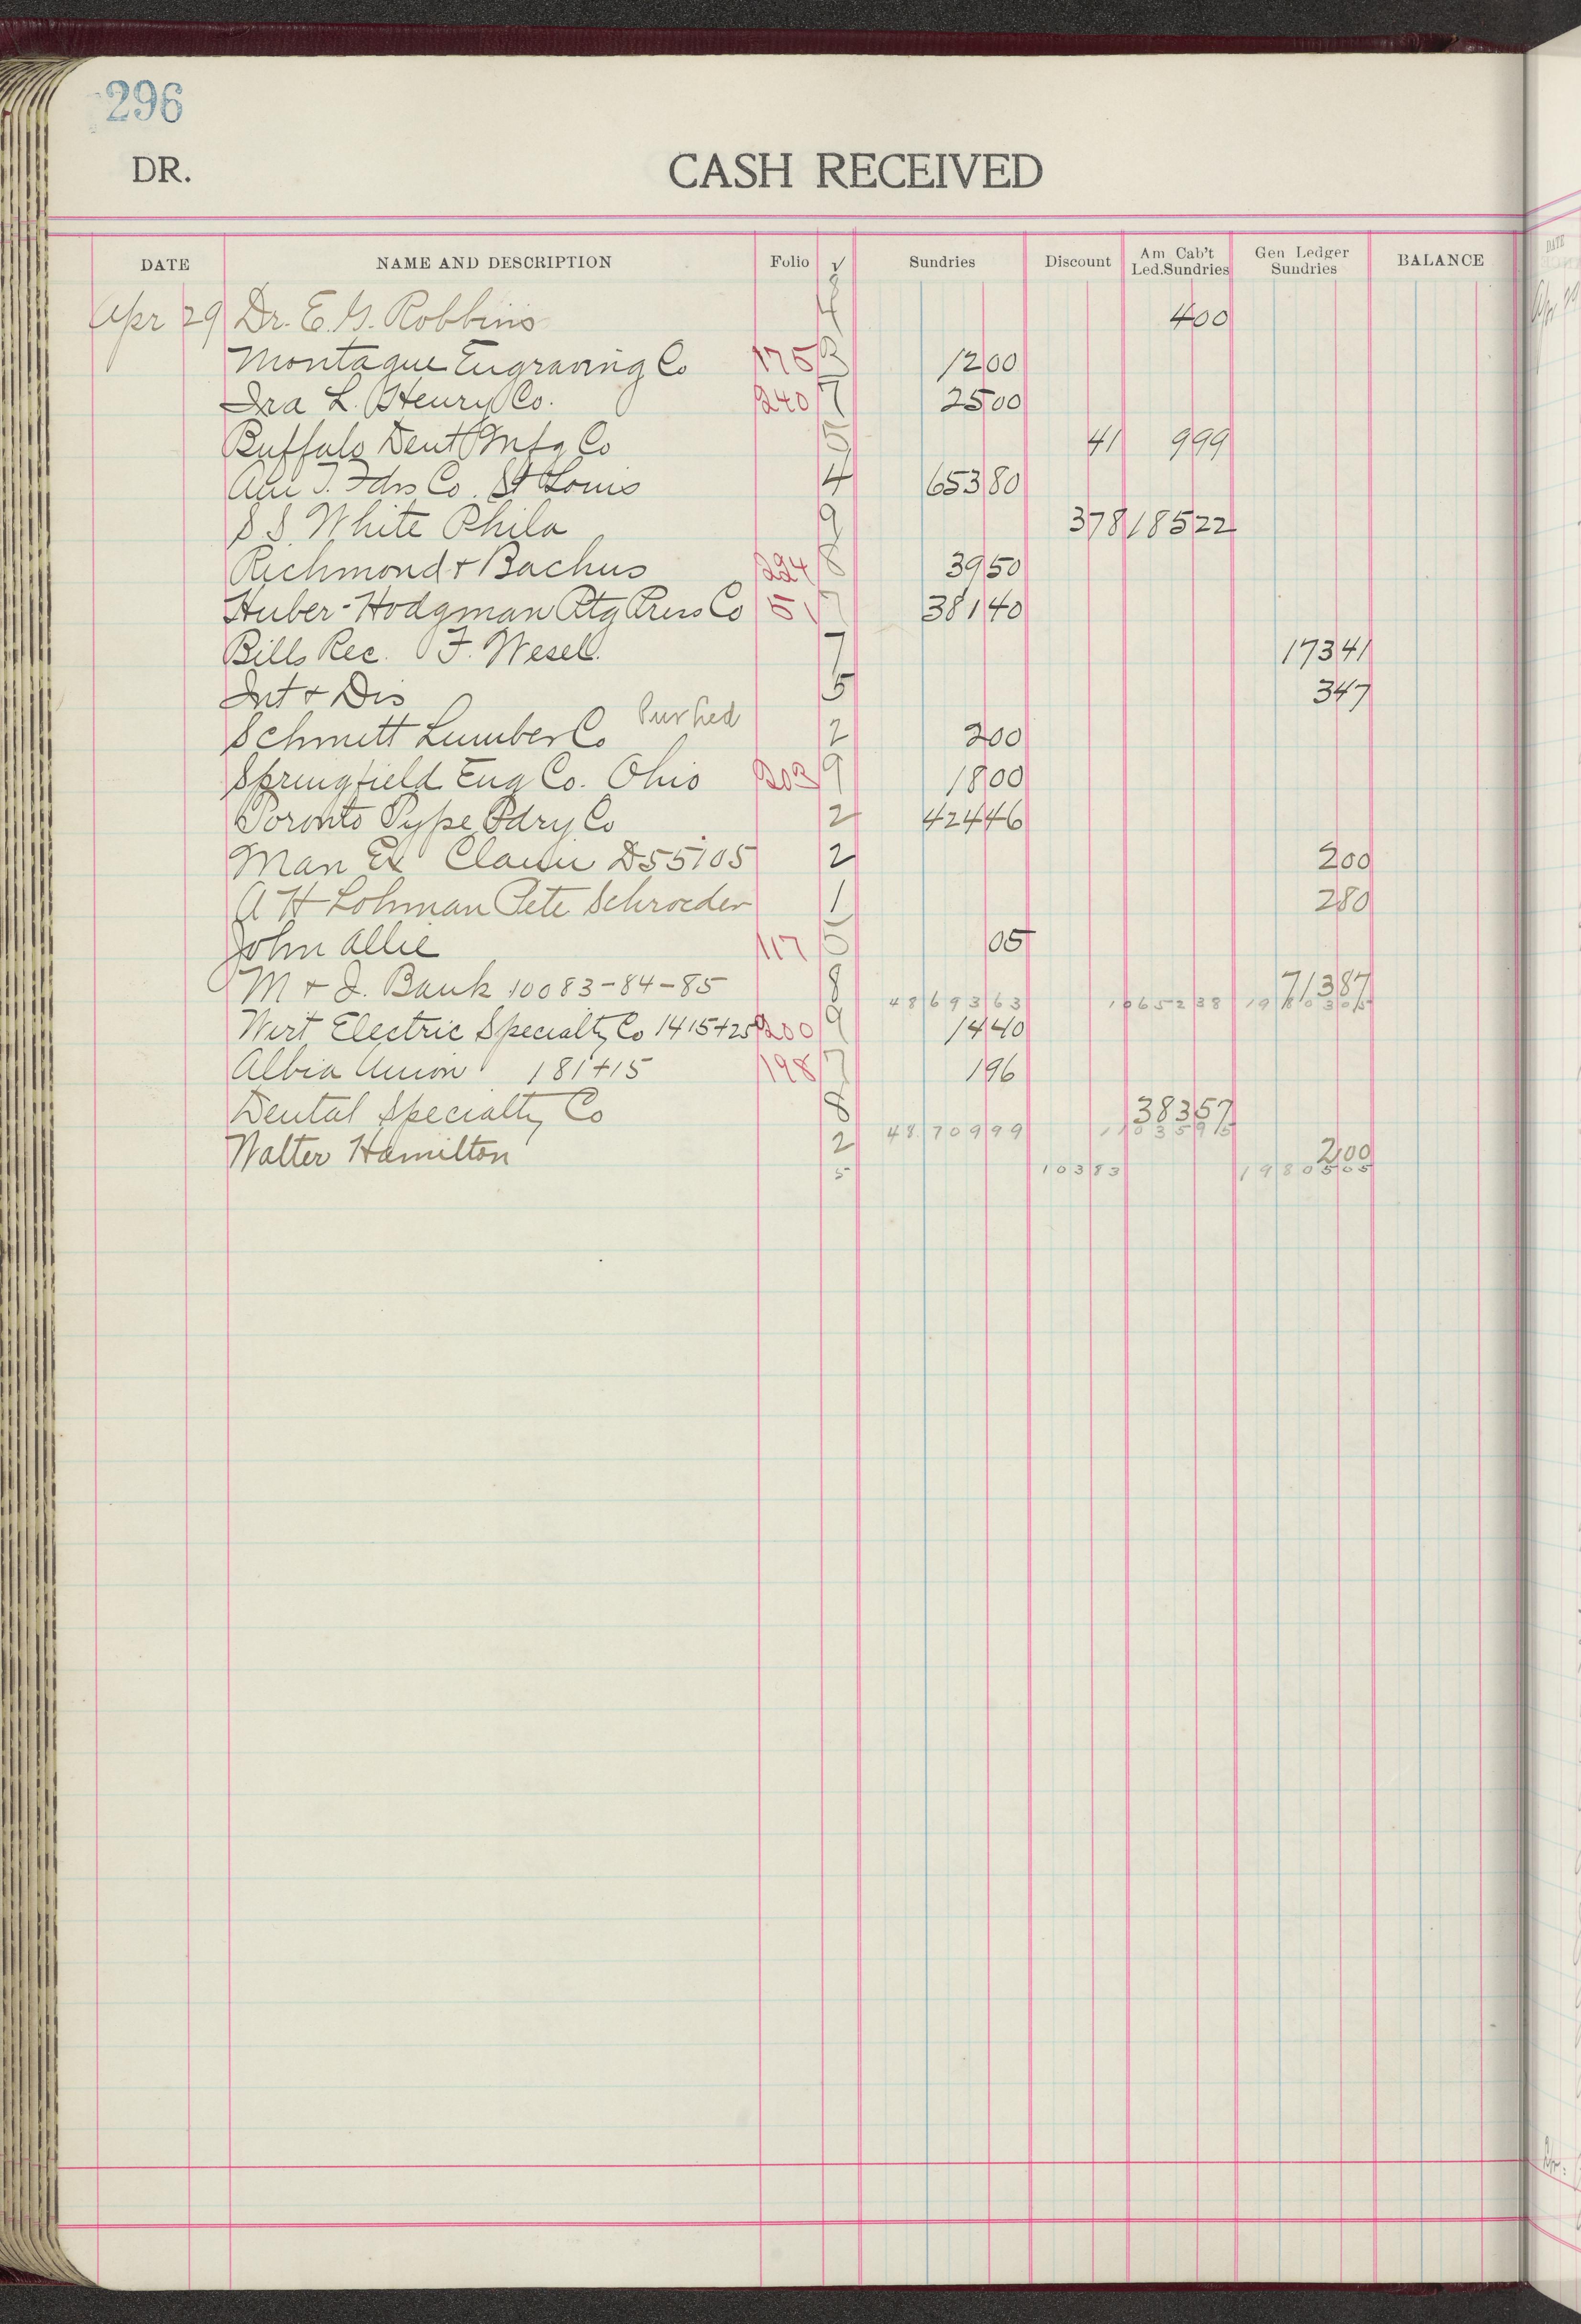 296
DR. CASH RECEIVED
DATE NAME AND DESCRIPTION Folio √ Sundries Discount Am Cab't Led.Sundries Gen Ledger Sundries BALANCE
Apr 29 Dr. E. G. Robbins 4 400
Montague Engraving Co 175 3 1200
Ira L. Henry Co. 240 7 2500
Buffalo Dent Mfg Co 5 41 999
Am T. Fdrs Co. St Louis 4 65380
S S. White Phila 9 378 18522
Richmond + Bachus 224 8 3950
Huber-Hodgman Ptg Press Co 51 7 38140
Bills Rec. F. Wesel. 7 17341
Int + Dis 5 347
Schmitt Lumber Co Pur Led 2 200
Springfield Eng Co. Ohio 203 9 1800
Toronto Type Fdry Co 2 42446
Man Ex Claim D55105 2 200
A H Lohman Pete Schroeder 1 280
John Allie 117 5 05
M + I. Bank 10083-84-85 8 71387
4869363 1065238 1980305
Wirt Electric Specialty Co 1415+25 200 9 1440
Albia Union 181+15 198 7 196
Dental Specialty Co 8 38357
4870999 1103595
Walter Hamilton 2 200
5 10383 1980505